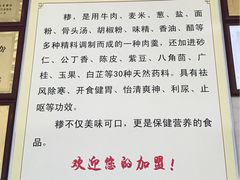 糁，是用牛肉、麦米、葱、盐、面
粉、骨头汤、胡椒粉、味精、香油、醋等
多种精料调制而成的一种肉羹，还加进砂
仁、公丁香、陈皮、紫豆、八角茴、广
桂、玉果、白芷等30种天然药料。具有祛
风除寒、开食健胃、怡清爽神、利尿、止
呕等功效。
糁不仅美味可口，更是保健营养的食
品。
欢迎您的加盟！